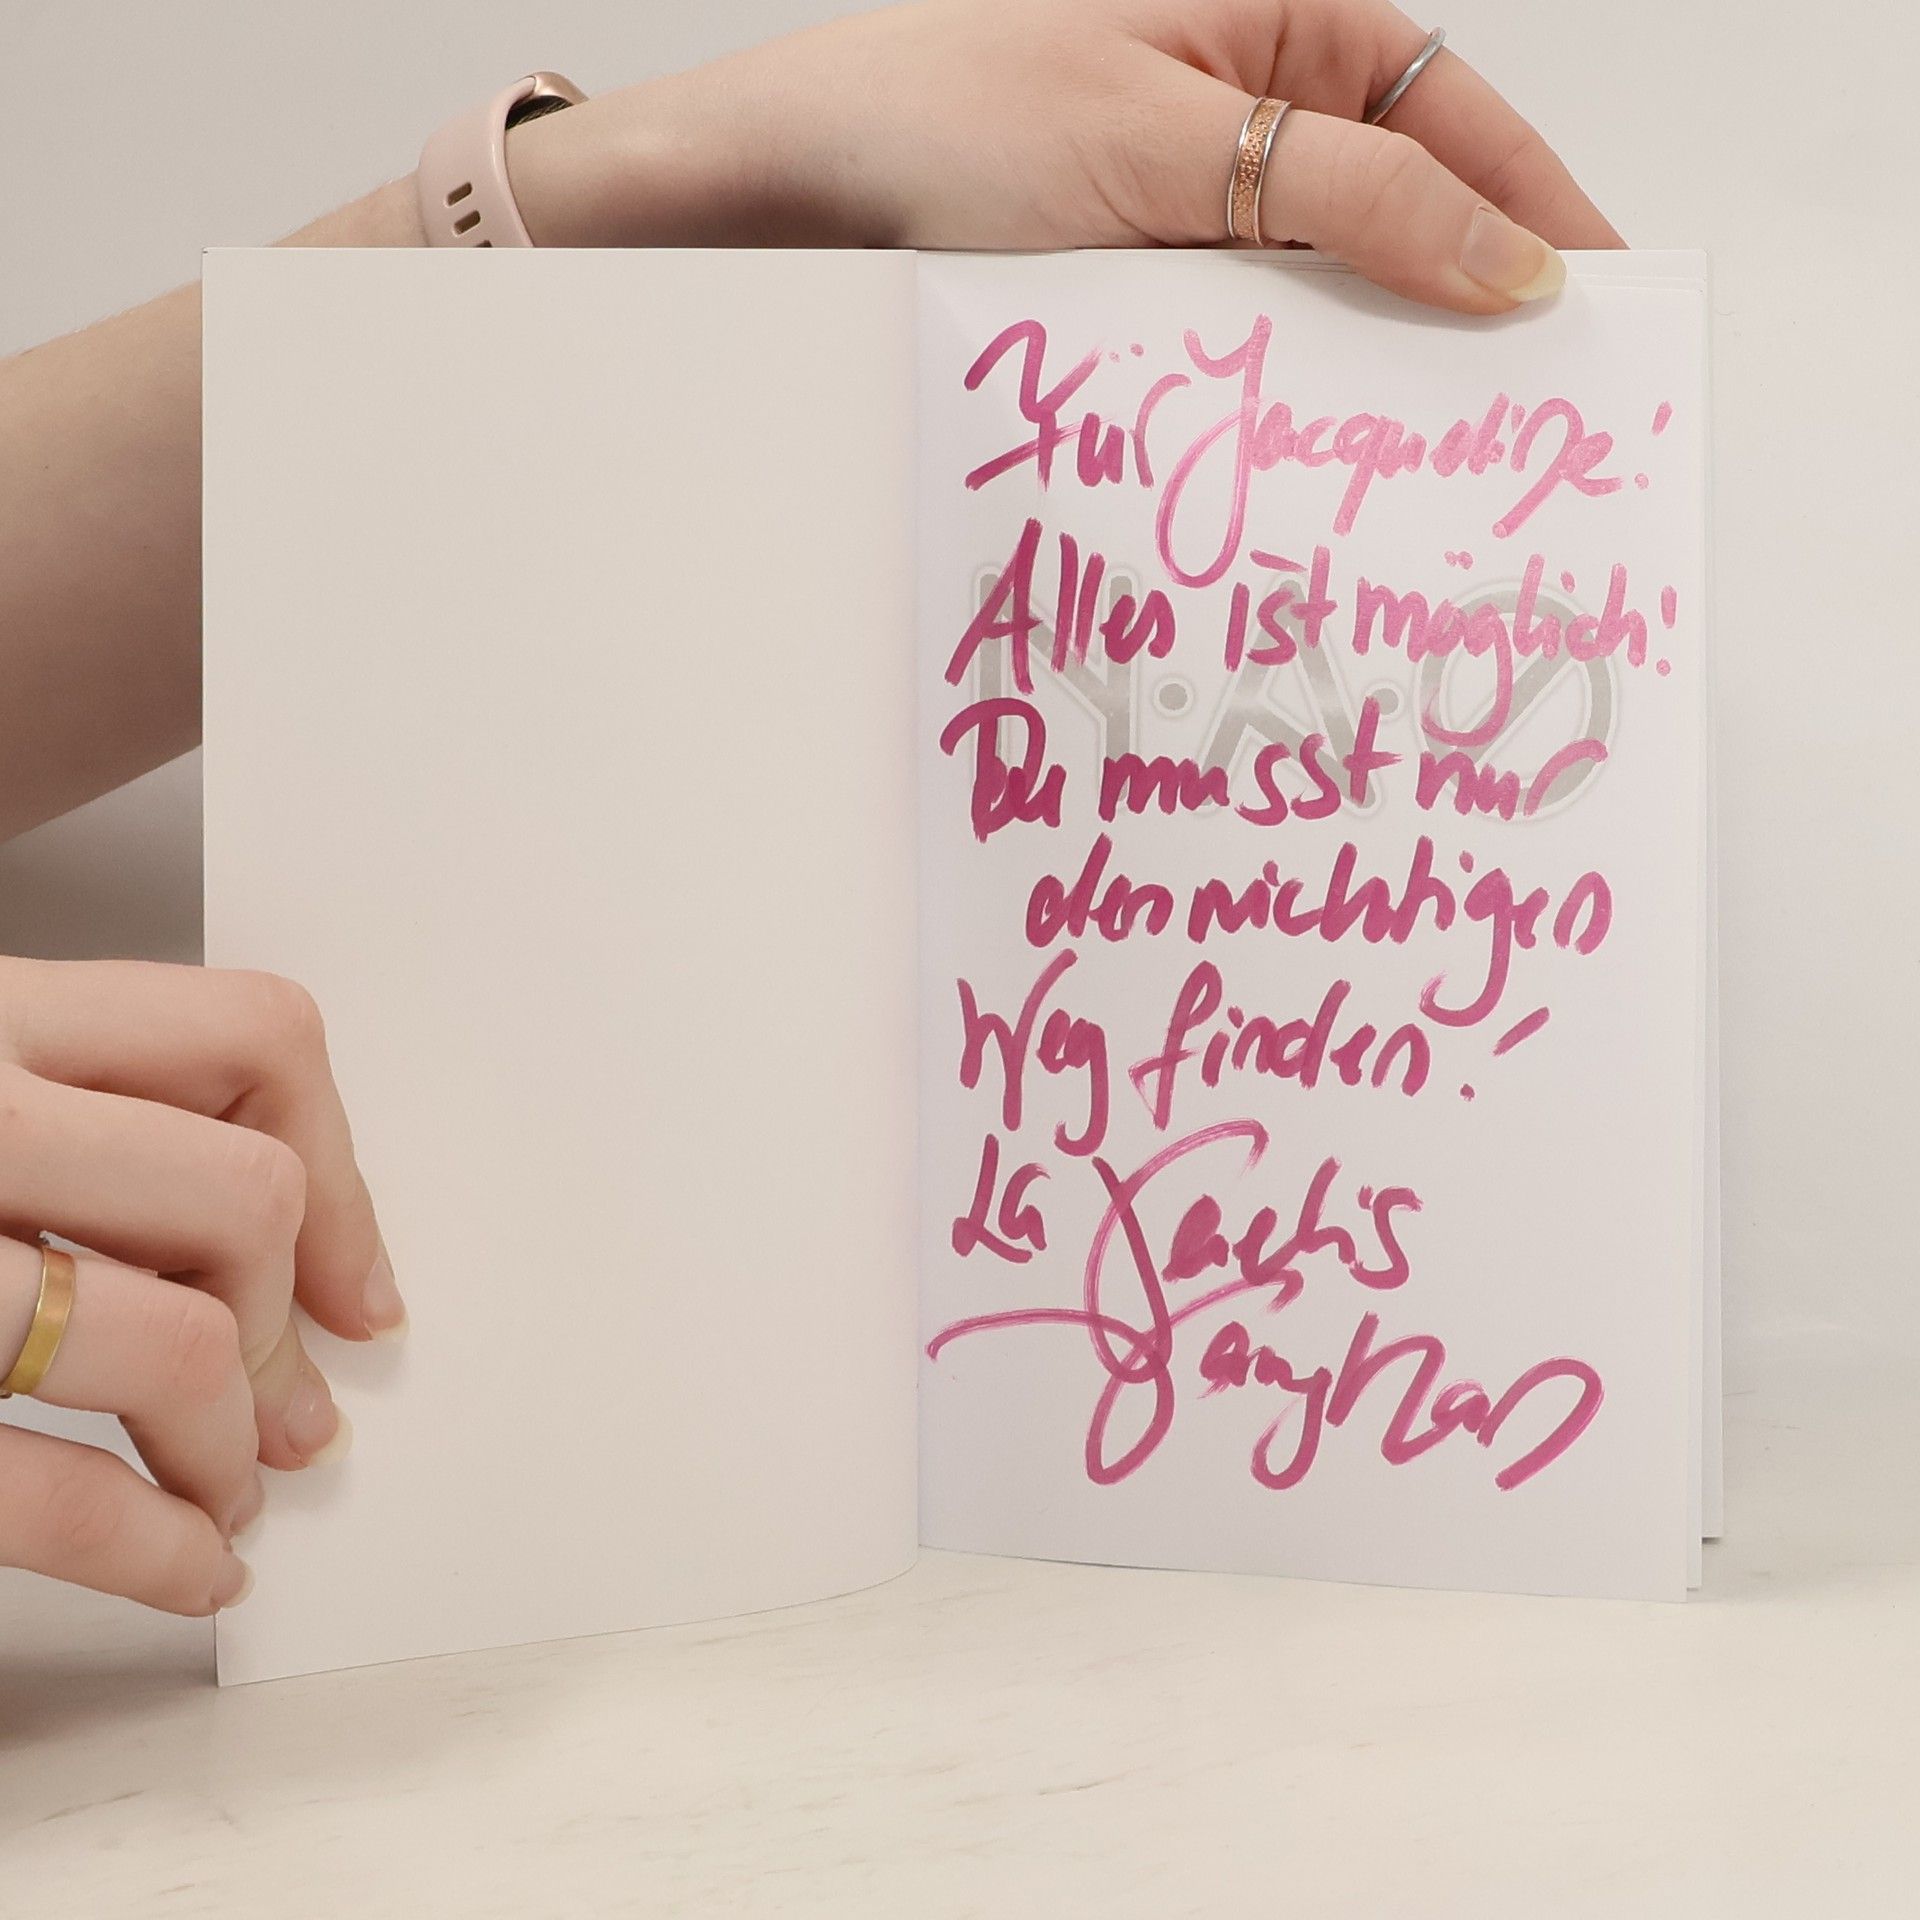 Für Jacqueline!
Alles ist möglich!
Du musst nur
den richtigen
Weg finden!